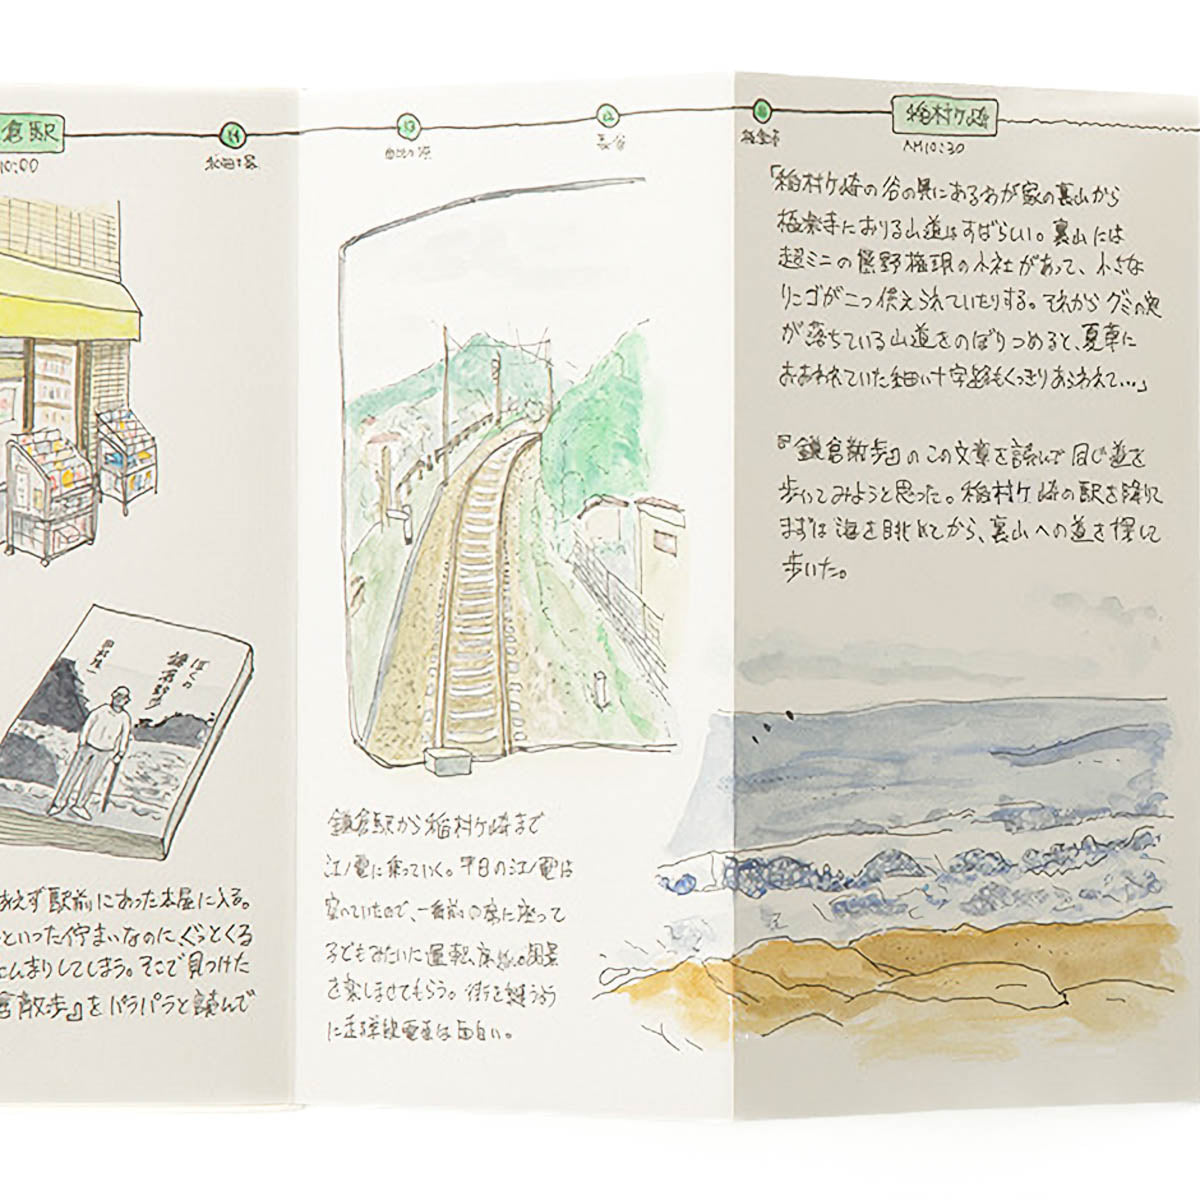 倉駅
10:00
14
和田塚
13
由比ヶ浜
12
長谷
11
極楽寺
稲村ヶ崎
AM10:30
ぼくの
鎌倉散歩
田村隆一
あえず駅前にあった本屋に入る。
といった佇まいなのに、ぐっとくる
こんまりしてしまう。そこで見つけた
倉散歩』をパラパラと読んで
鎌倉駅から稲村ヶ崎まで
江ノ電に乗っていく。平日の江ノ電は
空いていたので、一番前の席に座って
子どもみたいに運転席の風景
を楽しませてもらう。街を縫うよう
に走る単線電車は面白い。
「稲村ヶ崎の谷の奥にあるわが家の裏山から
極楽寺におりる山道はすばらしい。裏山には
超ミニの熊野権現の小社があって、小さな
リンゴが二つ供えられていたりする。それからグミの実
が落ちている山道をのぼりつめると、夏草に
おおわれていた細い十字路もくっきりあらわれて…」
『鎌倉散歩』のこの文章を読んで同じ道を
歩いてみようと思った。稲村ヶ崎の駅を降りて
まずは海を眺めてから、裏山への道を探して
歩いた。